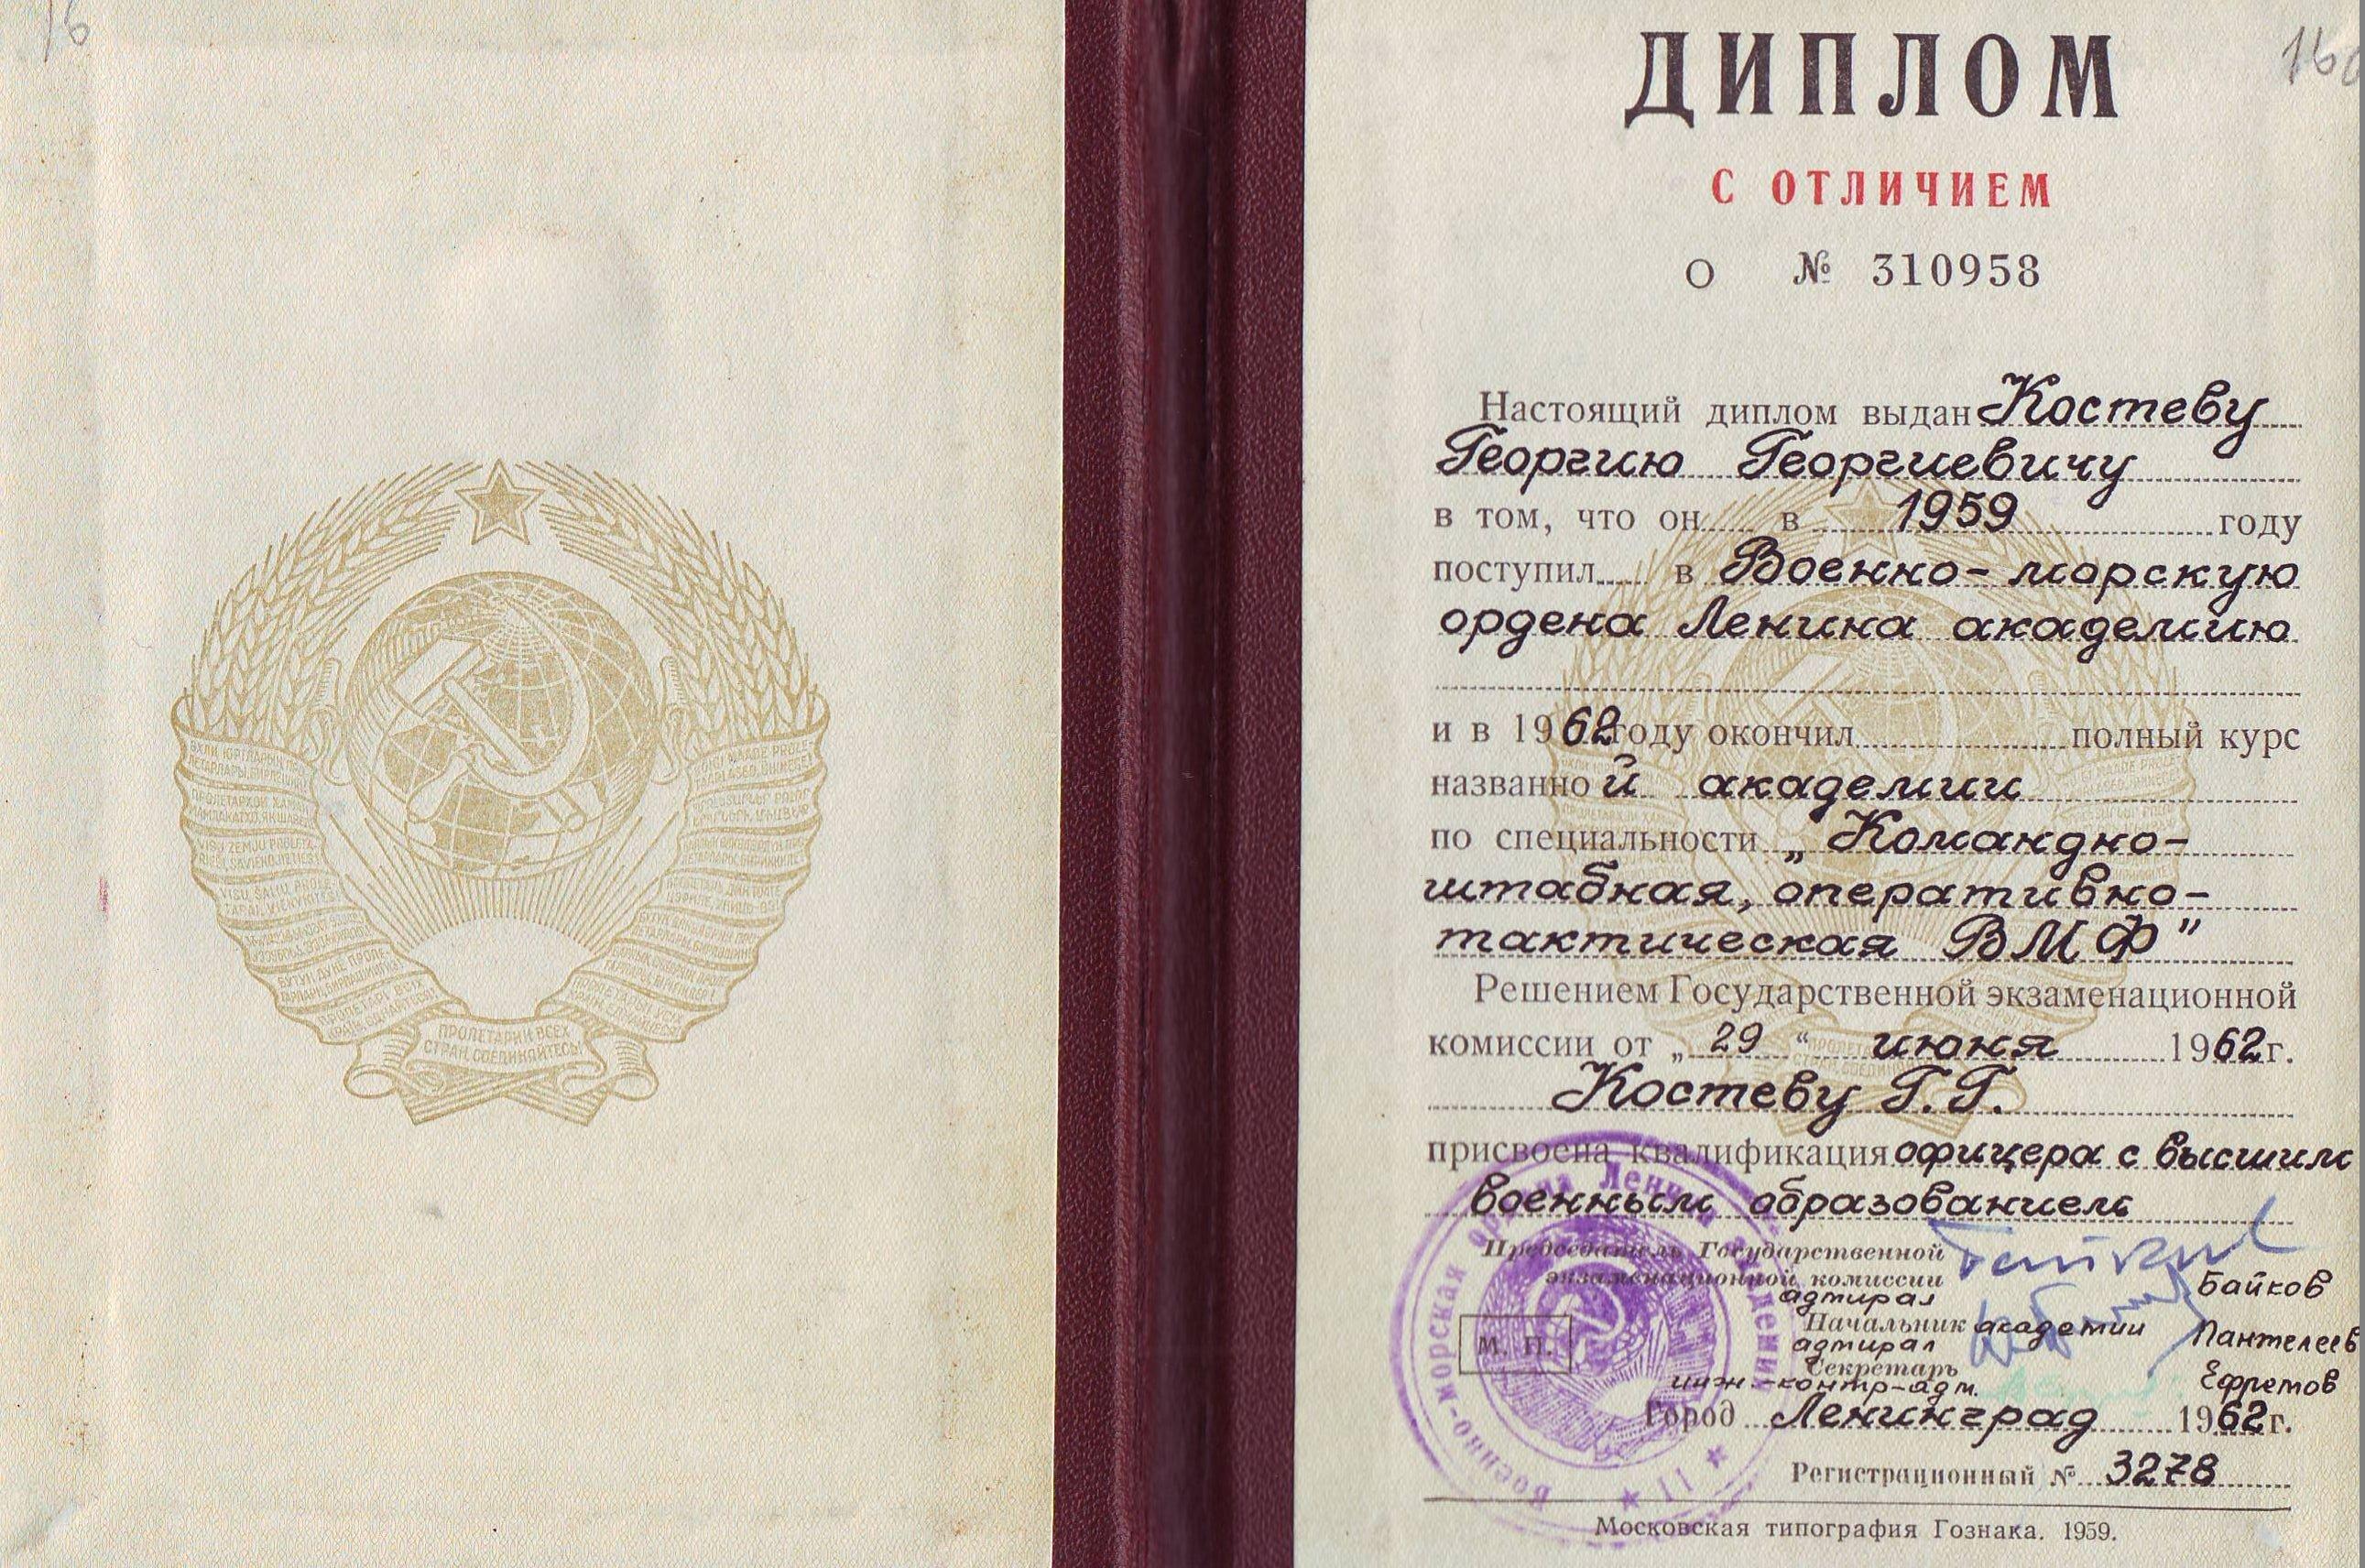 16
ПРОЛЕТАРИИ ВСЕХ
СТРАН, СОЕДИНЯЙТЕСЬ!
ДИПЛОМ
С ОТЛИЧИЕМ
О № 310958
Настоящий диплом выдан Костеву
Георгию Георгиевичу
в том, что он в 1959 году
поступил в Военно-морскую
ордена Ленина академию
и в 1962 году окончил полный курс
названной академии
по специальности „Командно-
штабная, оперативно-
тактическая ВМФ"
Решением Государственной экзаменационной
комиссии от „29“ июня 1962 г.
Костеву Г.Г.
присвоена квалификация офицера с высшим
военным образованием
Председатель Государственной
экзаменационной комиссии
адмирал Байков
Начальник академии
адмирал Пантелеев
Секретарь
инж.-контр-адм. Ефремов
М. П.
Город Ленинград 1962 г.
Регистрационный № 3278
Московская типография Гознака. 1959.